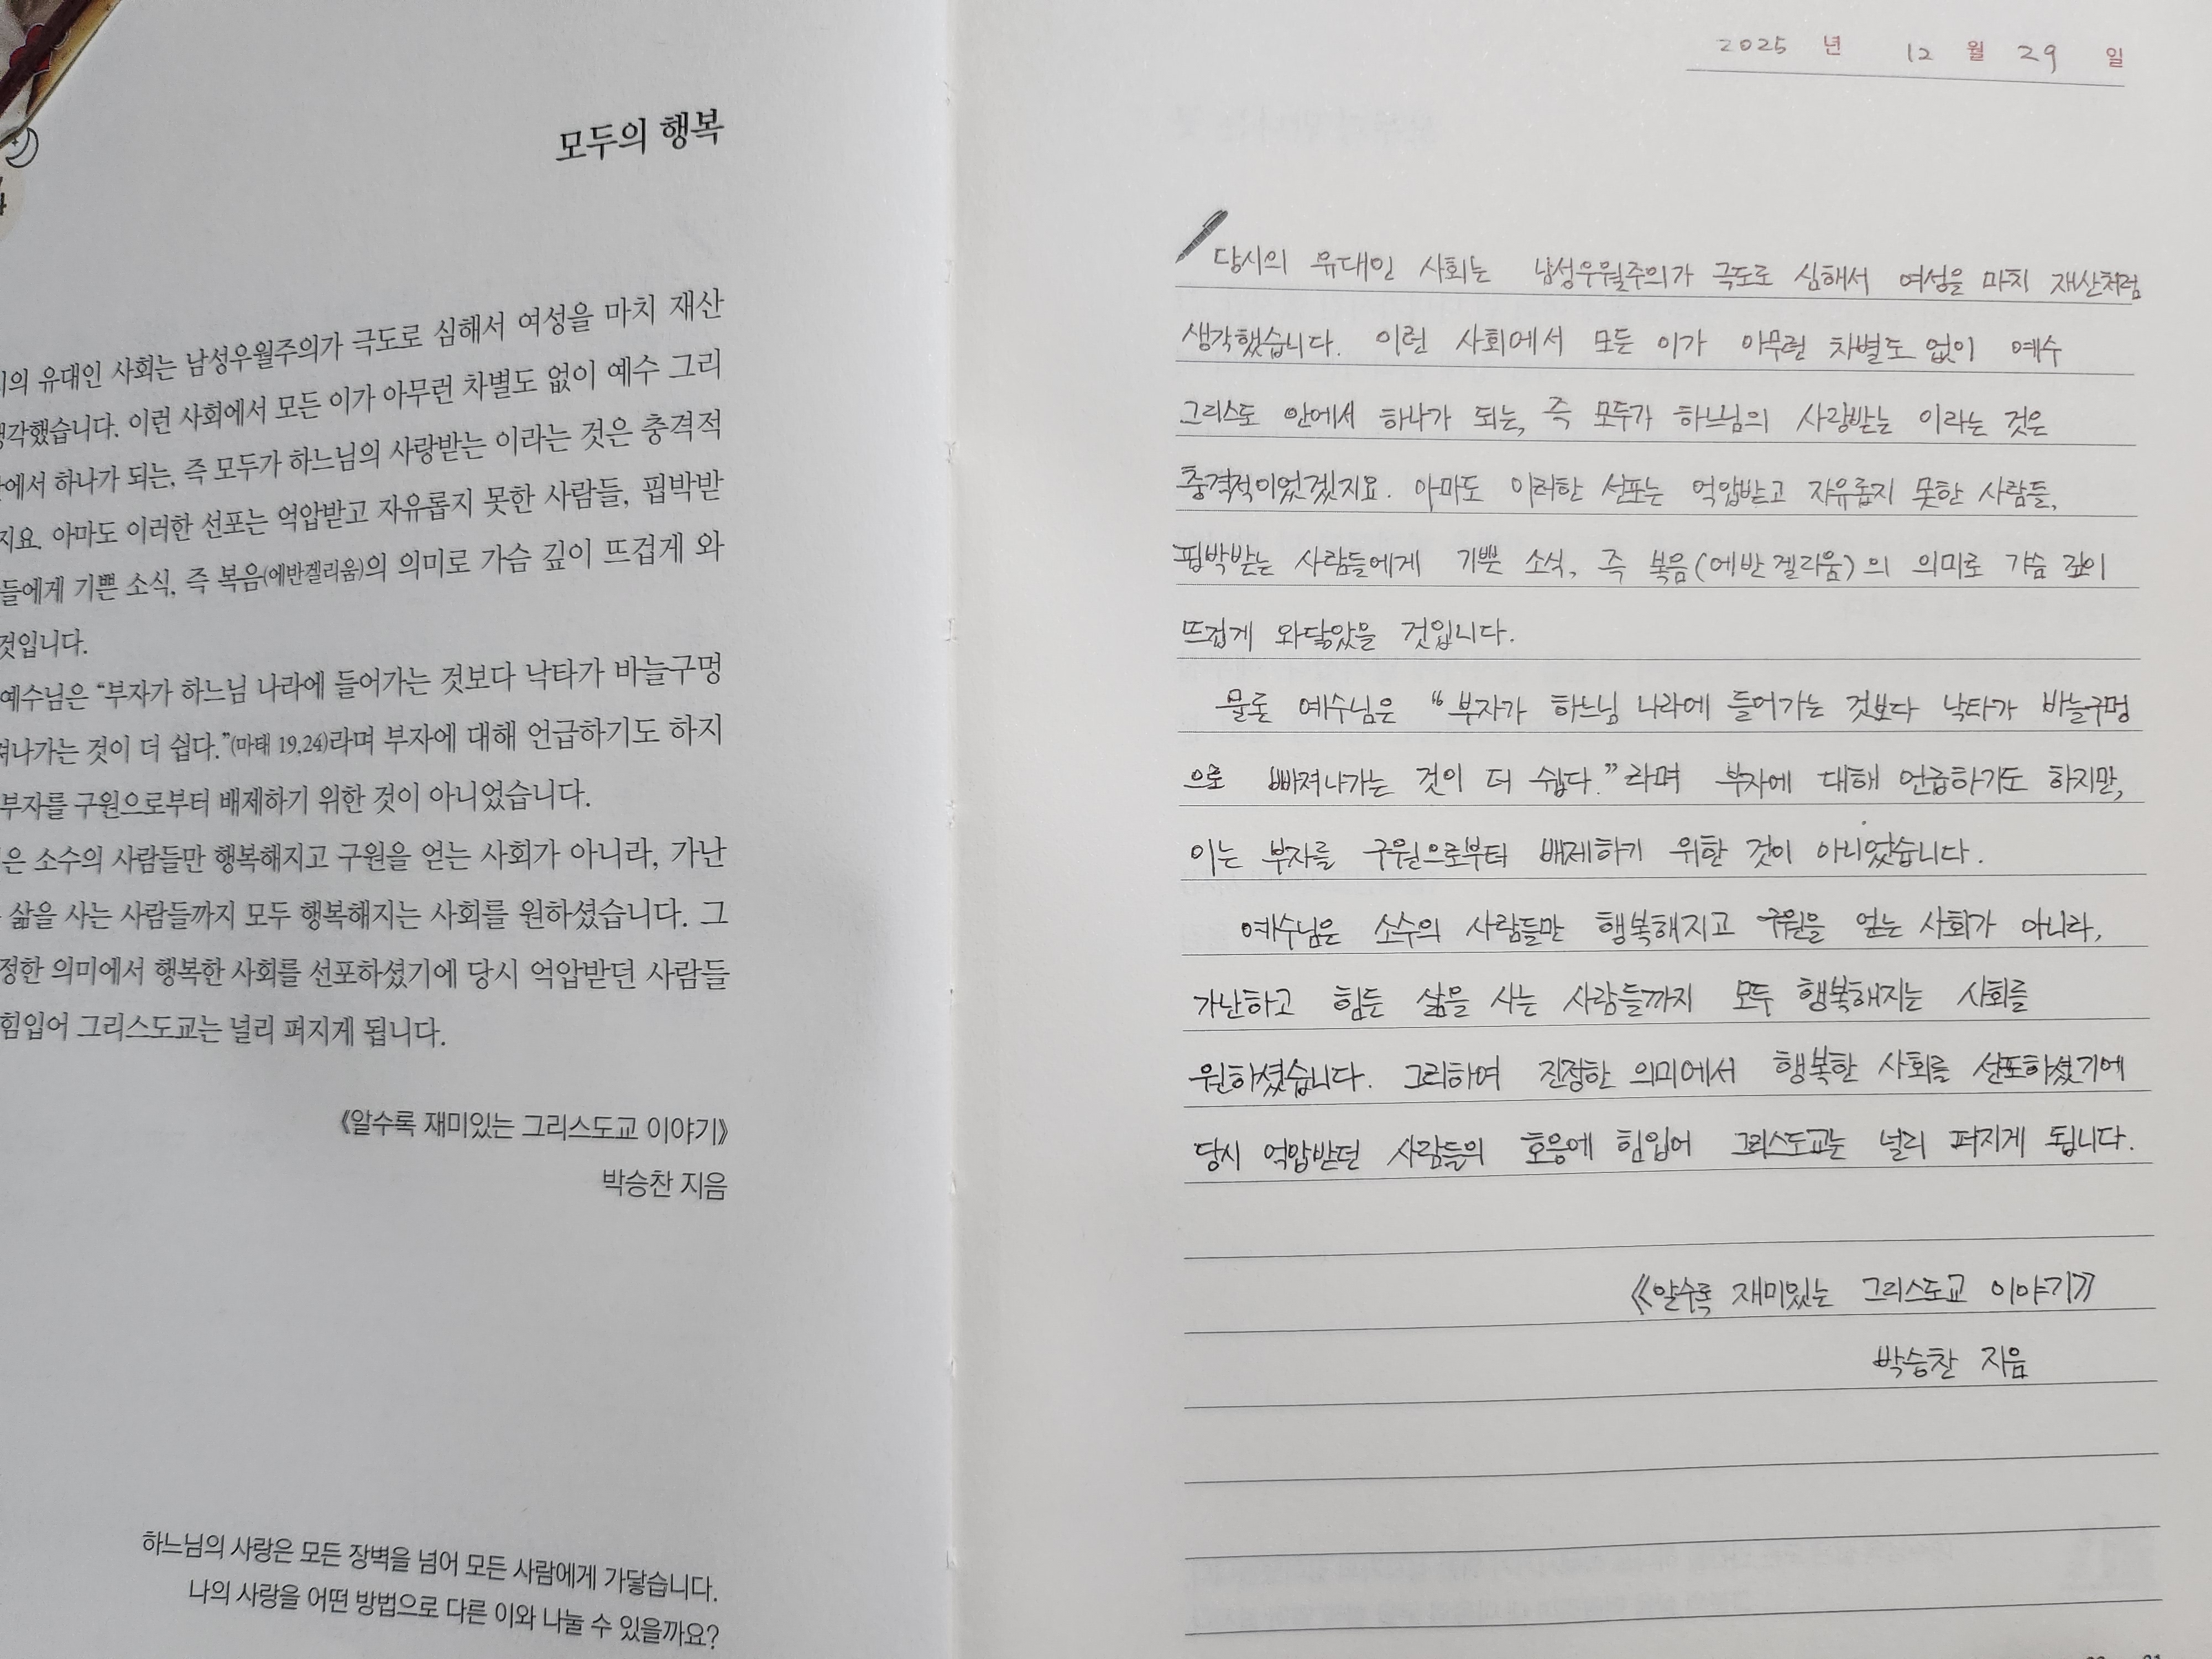 모두의 행복
의 유대인 사회는 남성우월주의가 극도로 심해서 여성을 마치 재산
각했습니다. 이런 사회에서 모든 이가 아무런 차별도 없이 예수 그리
에서 하나가 되는, 즉 모두가 하느님의 사랑받는 이라는 것은 충격적
지요. 아마도 이러한 선포는 억압받고 자유롭지 못한 사람들, 핍박받
들에게 기쁜 소식, 즉 복음(에반겔리움)의 의미로 가슴 깊이 뜨겁게 와
것입니다.
예수님은 “부자가 하느님 나라에 들어가는 것보다 낙타가 바늘구멍
져나가는 것이 더 쉽다.”(마태 19,24)라며 부자에 대해 언급하기도 하지
부자를 구원으로부터 배제하기 위한 것이 아니었습니다.
은 소수의 사람들만 행복해지고 구원을 얻는 사회가 아니라, 가난
삶을 사는 사람들까지 모두 행복해지는 사회를 원하셨습니다. 그
정한 의미에서 행복한 사회를 선포하셨기에 당시 억압받던 사람들
힘입어 그리스도교는 널리 퍼지게 됩니다.
《알수록 재미있는 그리스도교 이야기》
박승찬 지음
하느님의 사랑은 모든 장벽을 넘어 모든 사람에게 가닿습니다.
나의 사랑을 어떤 방법으로 다른 이와 나눌 수 있을까요?
2025 년 12 월 29 일
당시의 유대인 사회는 남성우월주의가 극도로 심해서 여성을 마치 재산처럼
생각했습니다. 이런 사회에서 모든 이가 아무런 차별도 없이 예수
그리스도 안에서 하나가 되는, 즉 모두가 하느님의 사랑받는 이라는 것은
충격적이었겠지요. 아마도 이러한 선포는 억압받고 자유롭지 못한 사람들,
핍박받는 사람들에게 기쁜 소식, 즉 복음(에반겔리움)의 의미로 가슴 깊이
뜨겁게 와닿았을 것입니다.
물론 예수님은 “부자가 하느님 나라에 들어가는 것보다 낙타가 바늘구멍
으로 빠져나가는 것이 더 쉽다.”라며 부자에 대해 언급하기도 하지만,
이는 부자를 구원으로부터 배제하기 위한 것이 아니었습니다.
예수님은 소수의 사람들만 행복해지고 구원을 얻는 사회가 아니라,
가난하고 힘든 삶을 사는 사람들까지 모두 행복해지는 사회를
원하셨습니다. 그리하여 진정한 의미에서 행복한 사회를 선포하셨기에
당시 억압받던 사람들의 호응에 힘입어 그리스도교는 널리 퍼지게 됩니다.
《알수록 재미있는 그리스도교 이야기》
박승찬 지음